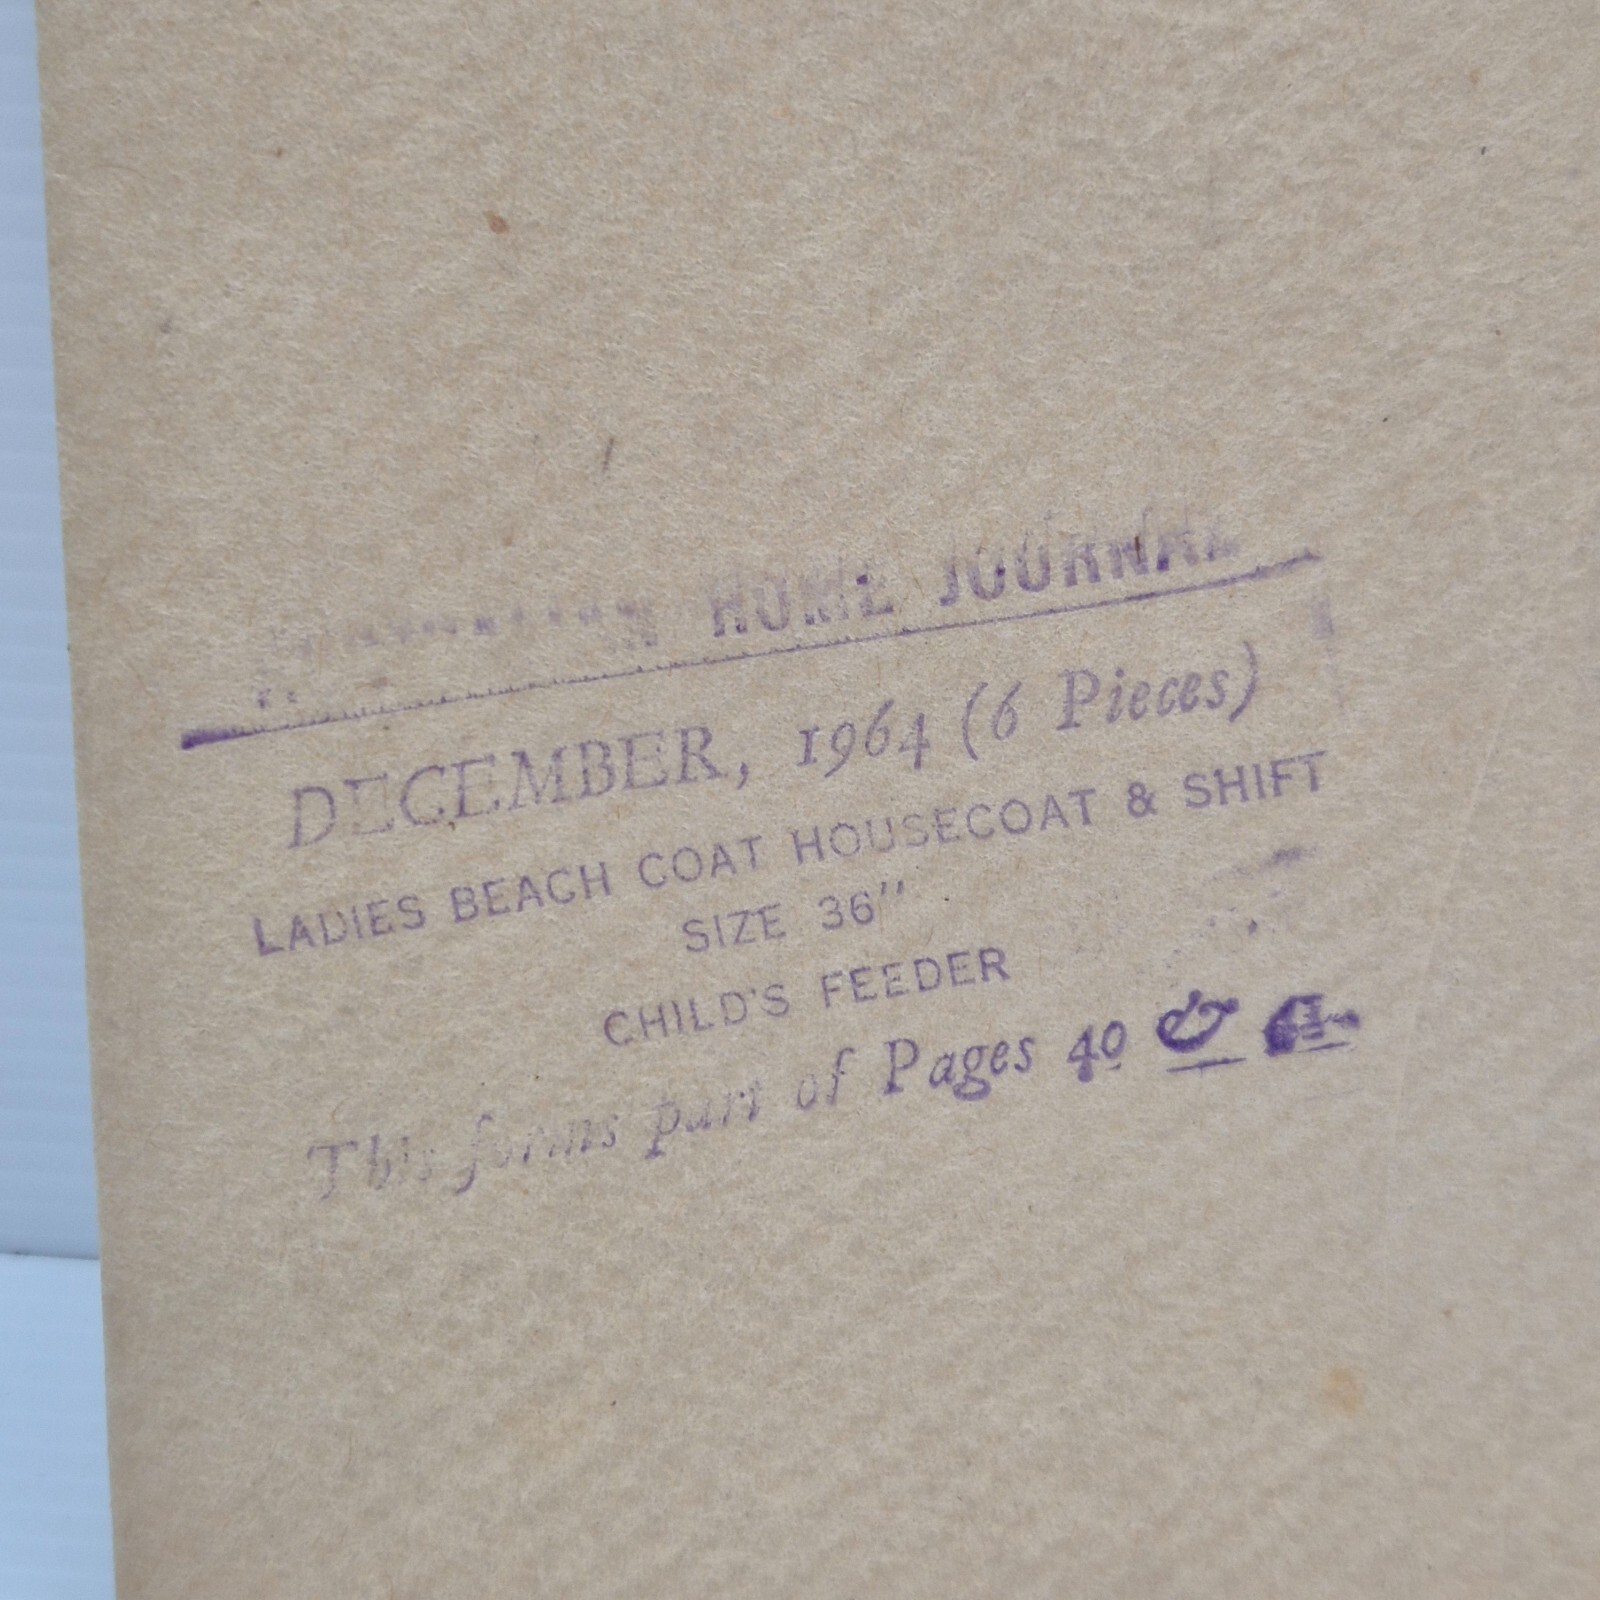 HOME JOURNAL
DECEMBER, 1964 (6 Pieces)
LADIES BEACH COAT HOUSECOAT & SHIFT
SIZE 36"
CHILD'S FEEDER
This forms part of Pages 40 &